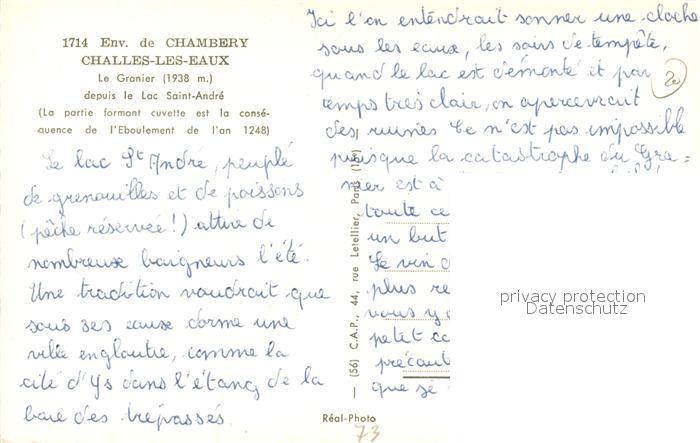 1714 Env. de CHAMBERY
CHALLES-LES-EAUX
Le Granier (1938 m.)
depuis le Lac Saint-André
(La partie formant cuvette est la consé-
quence de l'Eboulement de l'an 1248)
Le lac St André, peuplé
de grenouilles et de poissons
(pêche réservée !) attire de
nombreux baigneurs l'été.
Une tradition voudrait que
sous ses eaux dorme une
ville engloutie, comme la
cité d'Ys dans l'étang de la
baie des trépassés.
Ici l'on entendrait sonner une cloche
sous les eaux, les soirs de tempête,
quand le lac est démonté et par
temps très clair, on apercevrait
des ruines Ce n'est pas impossible
puisque la catastrophe du Gra-
nier est à
toute ce
un but
Le vin d
plus re
vous y a
petit co
précaut
que se
20
— (56) C.A.P., 44, rue Letellier, Paris (15e)
Réal-Photo
73
privacy protection
Datenschutz